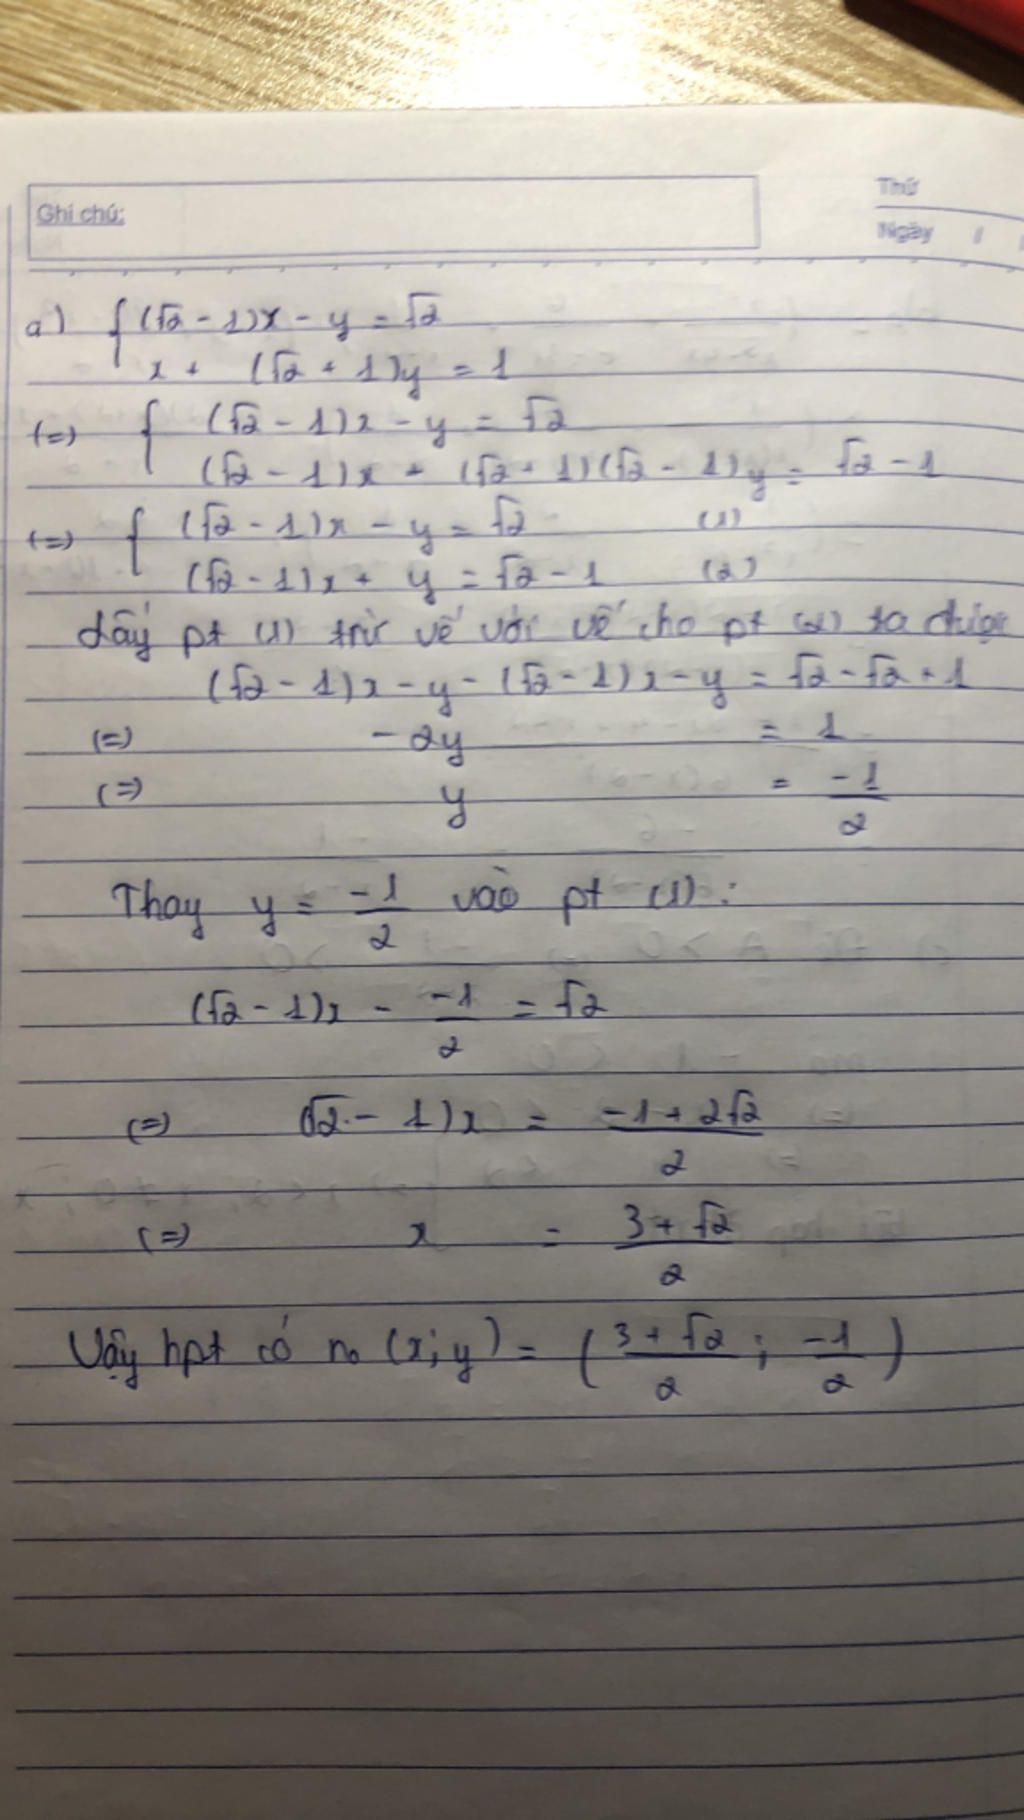 Ghi chú:
Thứ
Ngày / /
a) { (√2 - 1)x - y = √2
x + (√2 + 1)y = 1
(=) { (√2 - 1)x - y = √2
(√2 - 1)x + (√2 + 1)(√2 - 1)y = √2 - 1
(=) { (√2 - 1)x - y = √2 (1)
(√2 - 1)x + y = √2 - 1 (2)
Lấy pt (1) trừ vế với vế cho pt (2) ta được
(√2 - 1)x - y - (√2 - 1)x - y = √2 - √2 + 1
(=) -2y = 1
(=) y = -1/2
Thay y = -1/2 vào pt (1) :
(√2 - 1)x - -1/2 = √2
(=) (√2 - 1)x = (-1 + 2√2)/2
(=) x = (3 + √2)/2
Vậy hpt có no (x;y) = ( (3 + √2)/2 ; -1/2 )